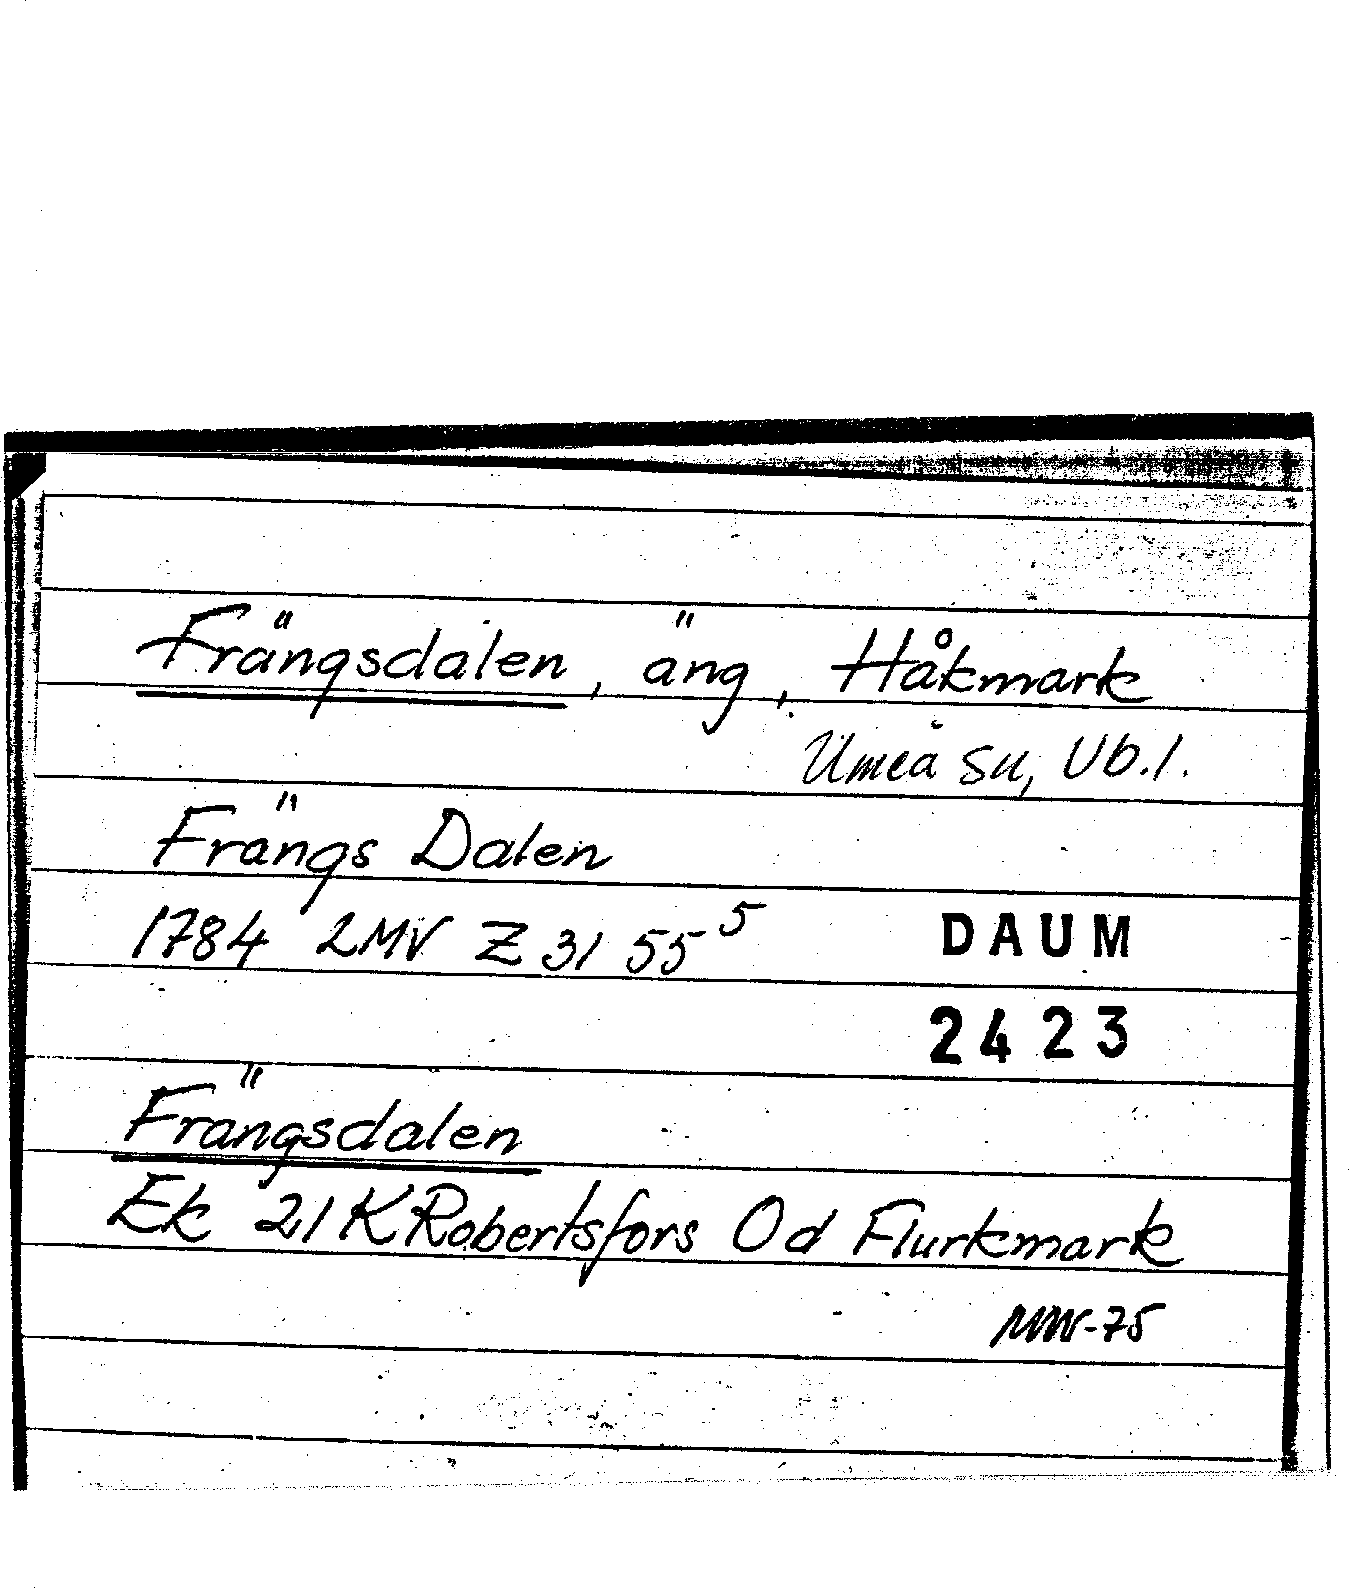 Frängsdalen, äng, Håkmark
Umeå sn, Vb.l.
Frängs Dalen
1784 2MV Z 31 55⁵
DAUM
2423
Frängsdalen
Ek 21 K Robertsfors Od Flurkmark
MW-75